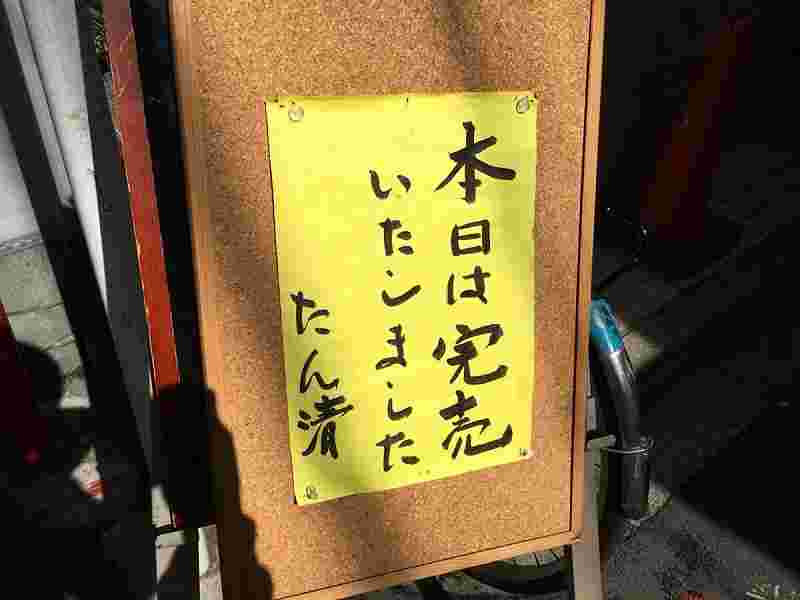 本日は完売
いたしました
たん清